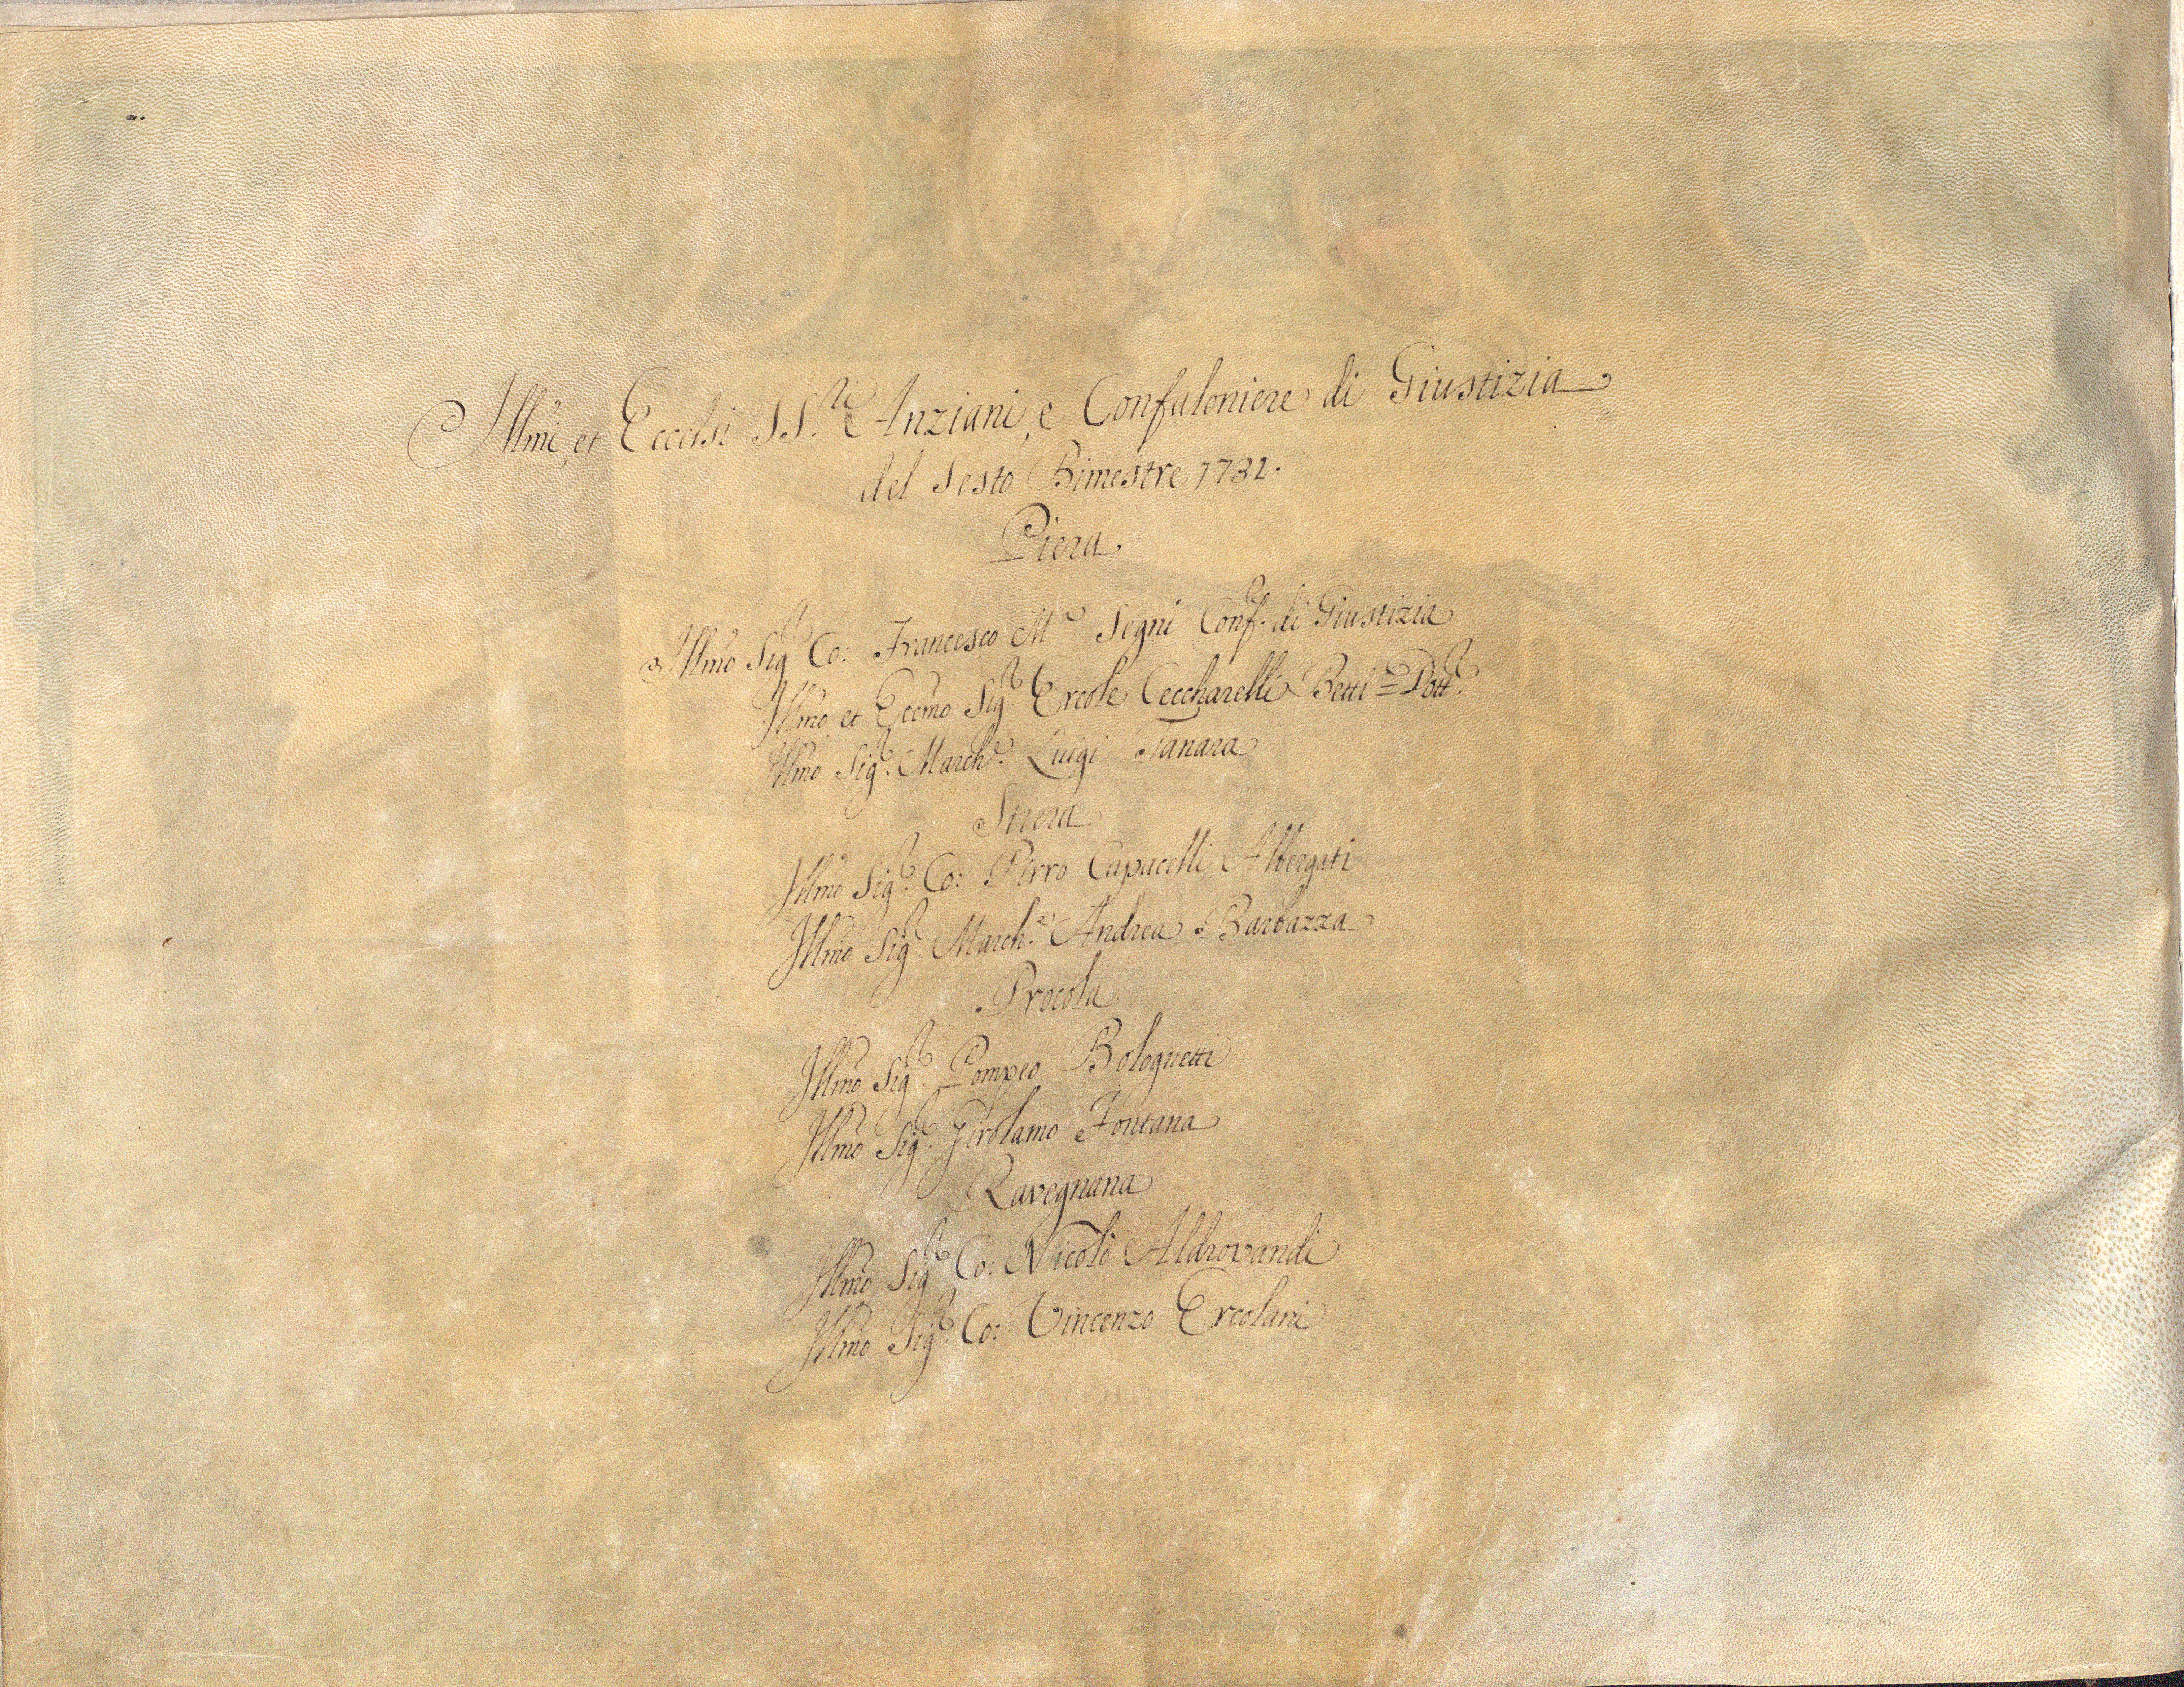 Illmi, et Eccelsi SS.ri Anziani, e Confaloniere di Giustizia
del Sesto Bimestre 1731.
Piera
Illmo Sigr. Co: Francesco Ma Segni Confe. di Giustizia
Illmo, et Eccmo Sigr. Ercole Ceccharelli Betti = Dottr.
Illmo Sigr. Marche. Luigi Tanara
Stiera
Illmo Sigr. Co: Pirro Capacelli Albergati
Illmo Sigr. March.e Andrea Barbazza
Procola
Illmo Sigr. Pompeo Bolognetti
Illmo Sigr. Girolamo Fontana
Ravegnana
Illmo Sigr. Co: Nicolò Aldrovandi
Illmo Sigr. Co: Vincenzo Ercolani